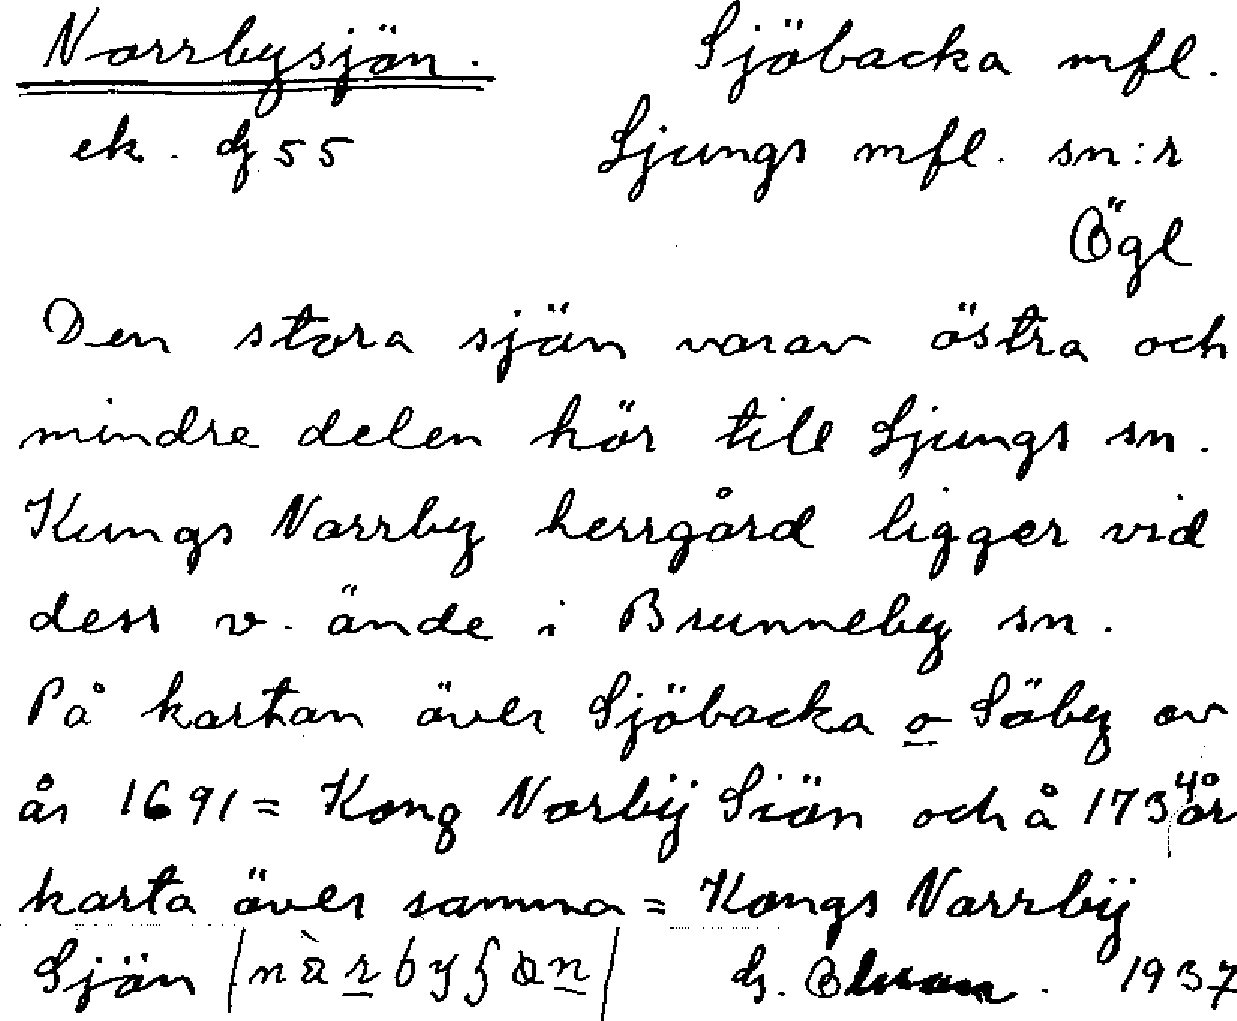 Norrbysjön. Sjöbacka mfl.
ek. dz 55 Ljungs mfl. sn:r
Ögl
Den stora sjön varav östra och
mindre delen hör till Ljungs sn.
Kungs Norrby herrgård ligger vid
dess v. ände i Brunneby sn.
På kartan över Sjöbacka o Söby av
år 1691 = Kong Norbÿ Siön och å 1734 års
karta över samma = Kongs Norrbÿ
Sjön 1937